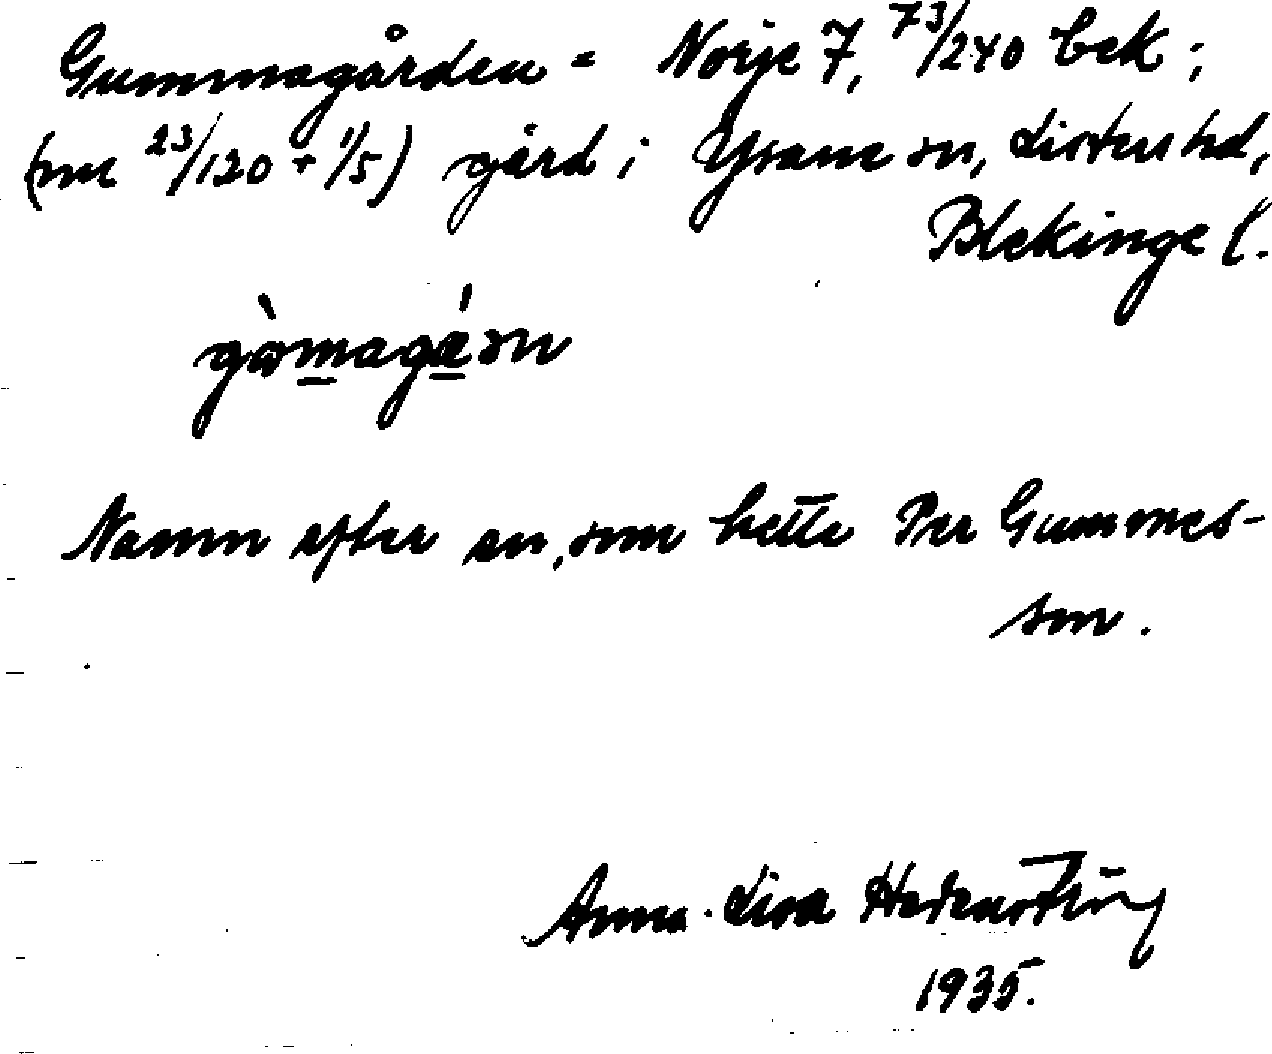 Gummagården = Norje 7, 73/240 bek;
(nu 23/120 + 1/5) gård i Ysane sn, Listers hd,
Blekinge l.
gòmagá́ɔn
Namn efter en, som hette Per Gummes-
son.
Anna-Lisa Hedenstierna
1935.